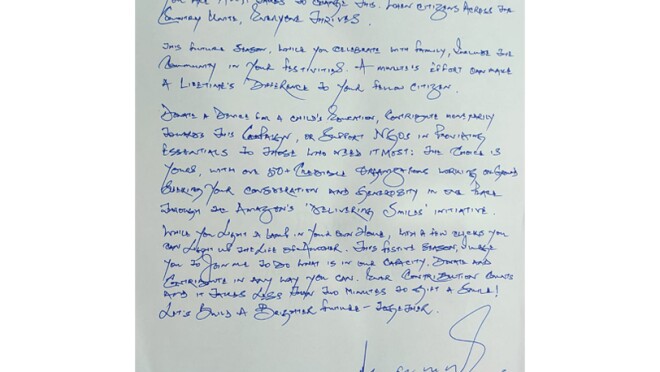 to change this. When citizens across the
country unite, everyone thrives.
This festive season, while you celebrate with family, include the
community in your festivities. A minute's effort can make
a lifetime's difference to your fellow citizen.
Donate a device for a child's education, contribute monetarily
towards this campaign, or support NGOs in providing
essentials to those who need it most: the choice is
yours, with over 150+ credible organizations working on ground
your consideration and generosity in one place
through the Amazon's 'Delivering Smiles' initiative.
While you light a lamp in your own house, with a few clicks you
can light up the life of another. This festive season, I urge
you to join me to do what is in our capacity. Donate and
contribute in any way you can. Your contribution counts
and it takes less than two minutes to gift a smile!
Let's build a brighter future - together.